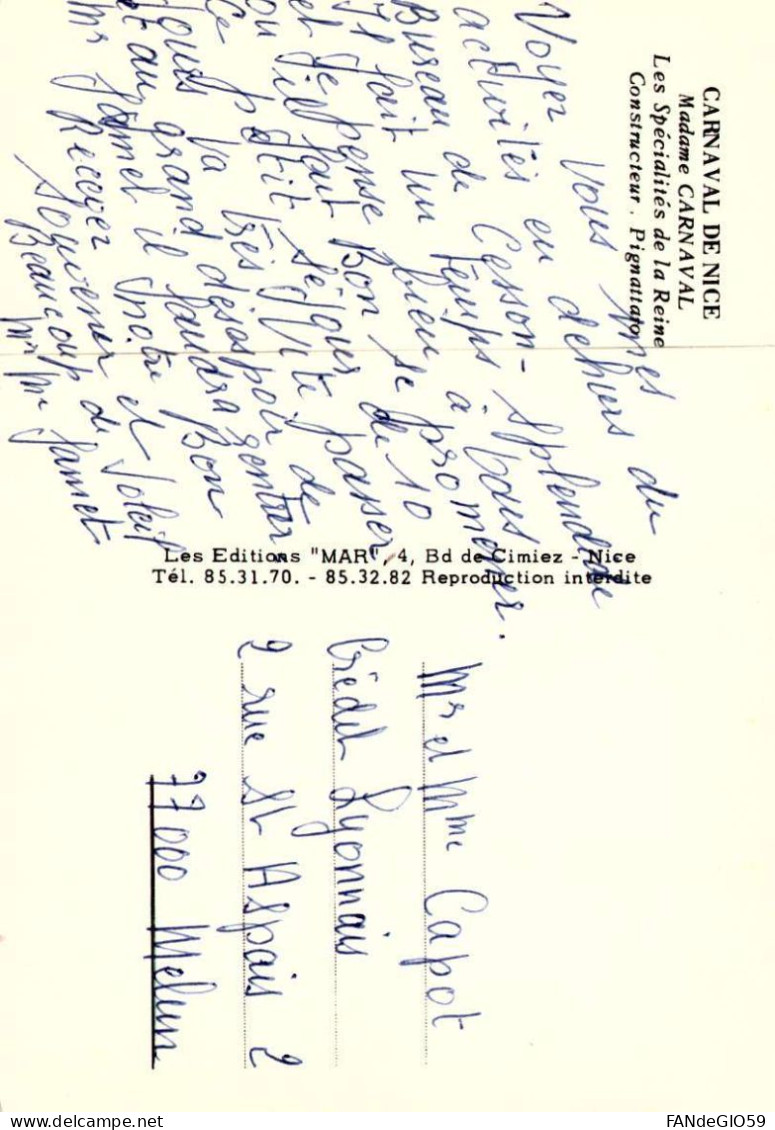 CARNAVAL DE NICE
Madame CARNAVAL
Les Spécialités de la Reine
Constructeur . Pignattaro
Voyez vous mes du
activités en dehors
Bureau de Cesson - Splendide
Il fait un temps à tous
et je pense bien se promener.
ou il fait Bon
Ce petit séjour de 10
jours va très vite passer
et au grand désespoir de
Mr Jamet il faudra rentrer
Recevez notre Bon
Souvenir et
Beaucoup de Soleil
Mr Mme Jamet
Les Editions "MAR", 4, Bd de Cimiez - Nice
Tél. 85.31.70. - 85.32.82 Reproduction interdite
Mr et Mme Capot
Crédit Lyonnais
2 rue St Aspais 2
77000 Melun
FANdeGIO59